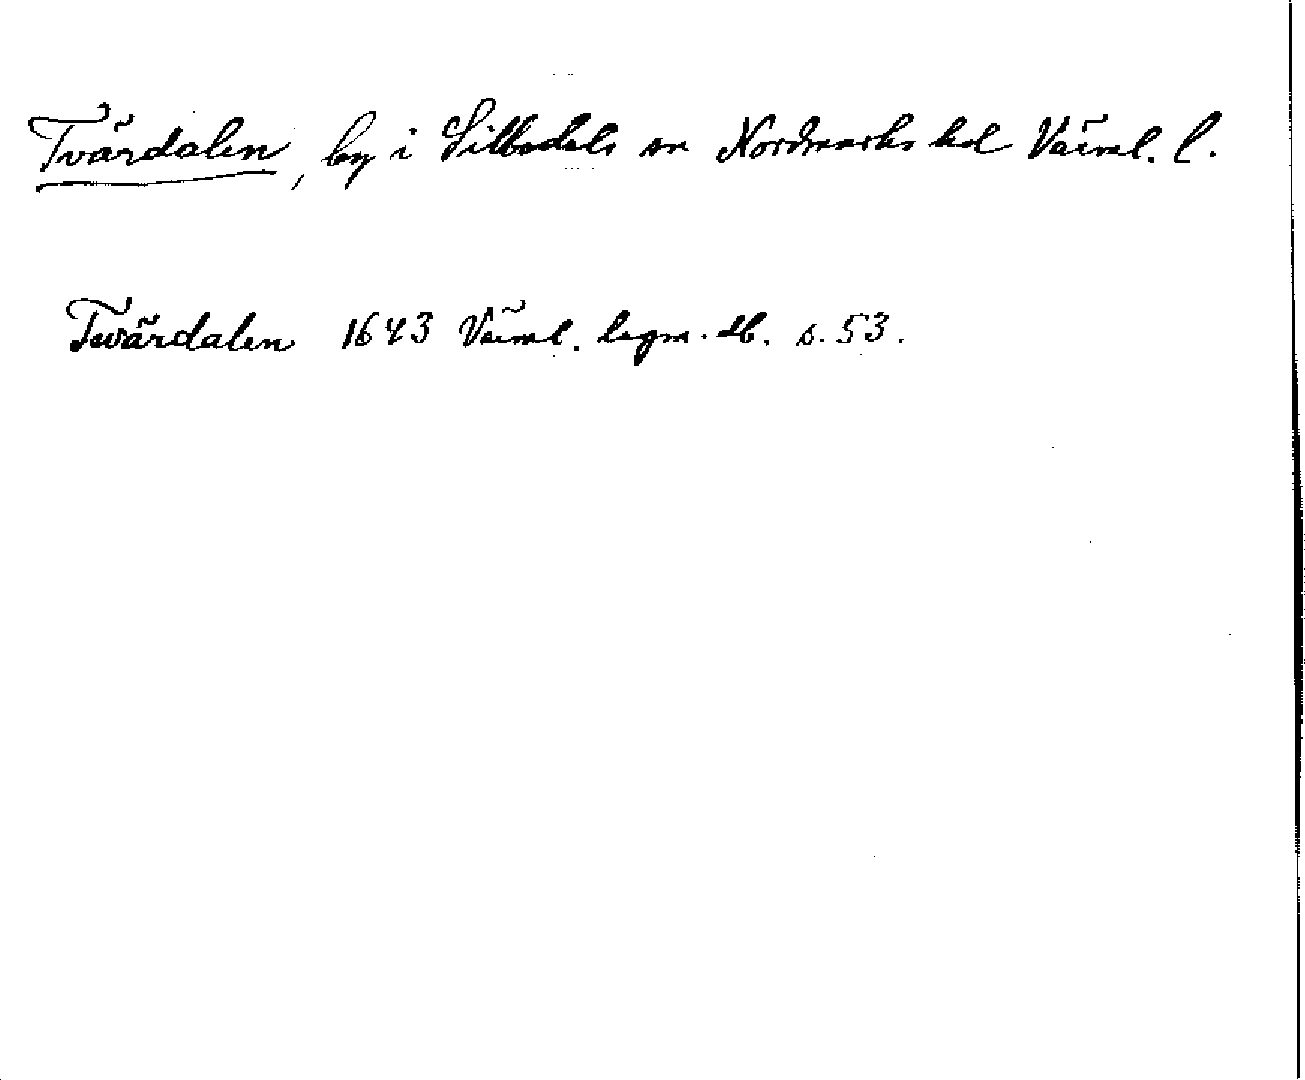 Tvärdalen, by i Silbodals sn Nordmarks hd Värml. l.
Twärdalen 1643 Värml. lagm. db. s. 53.